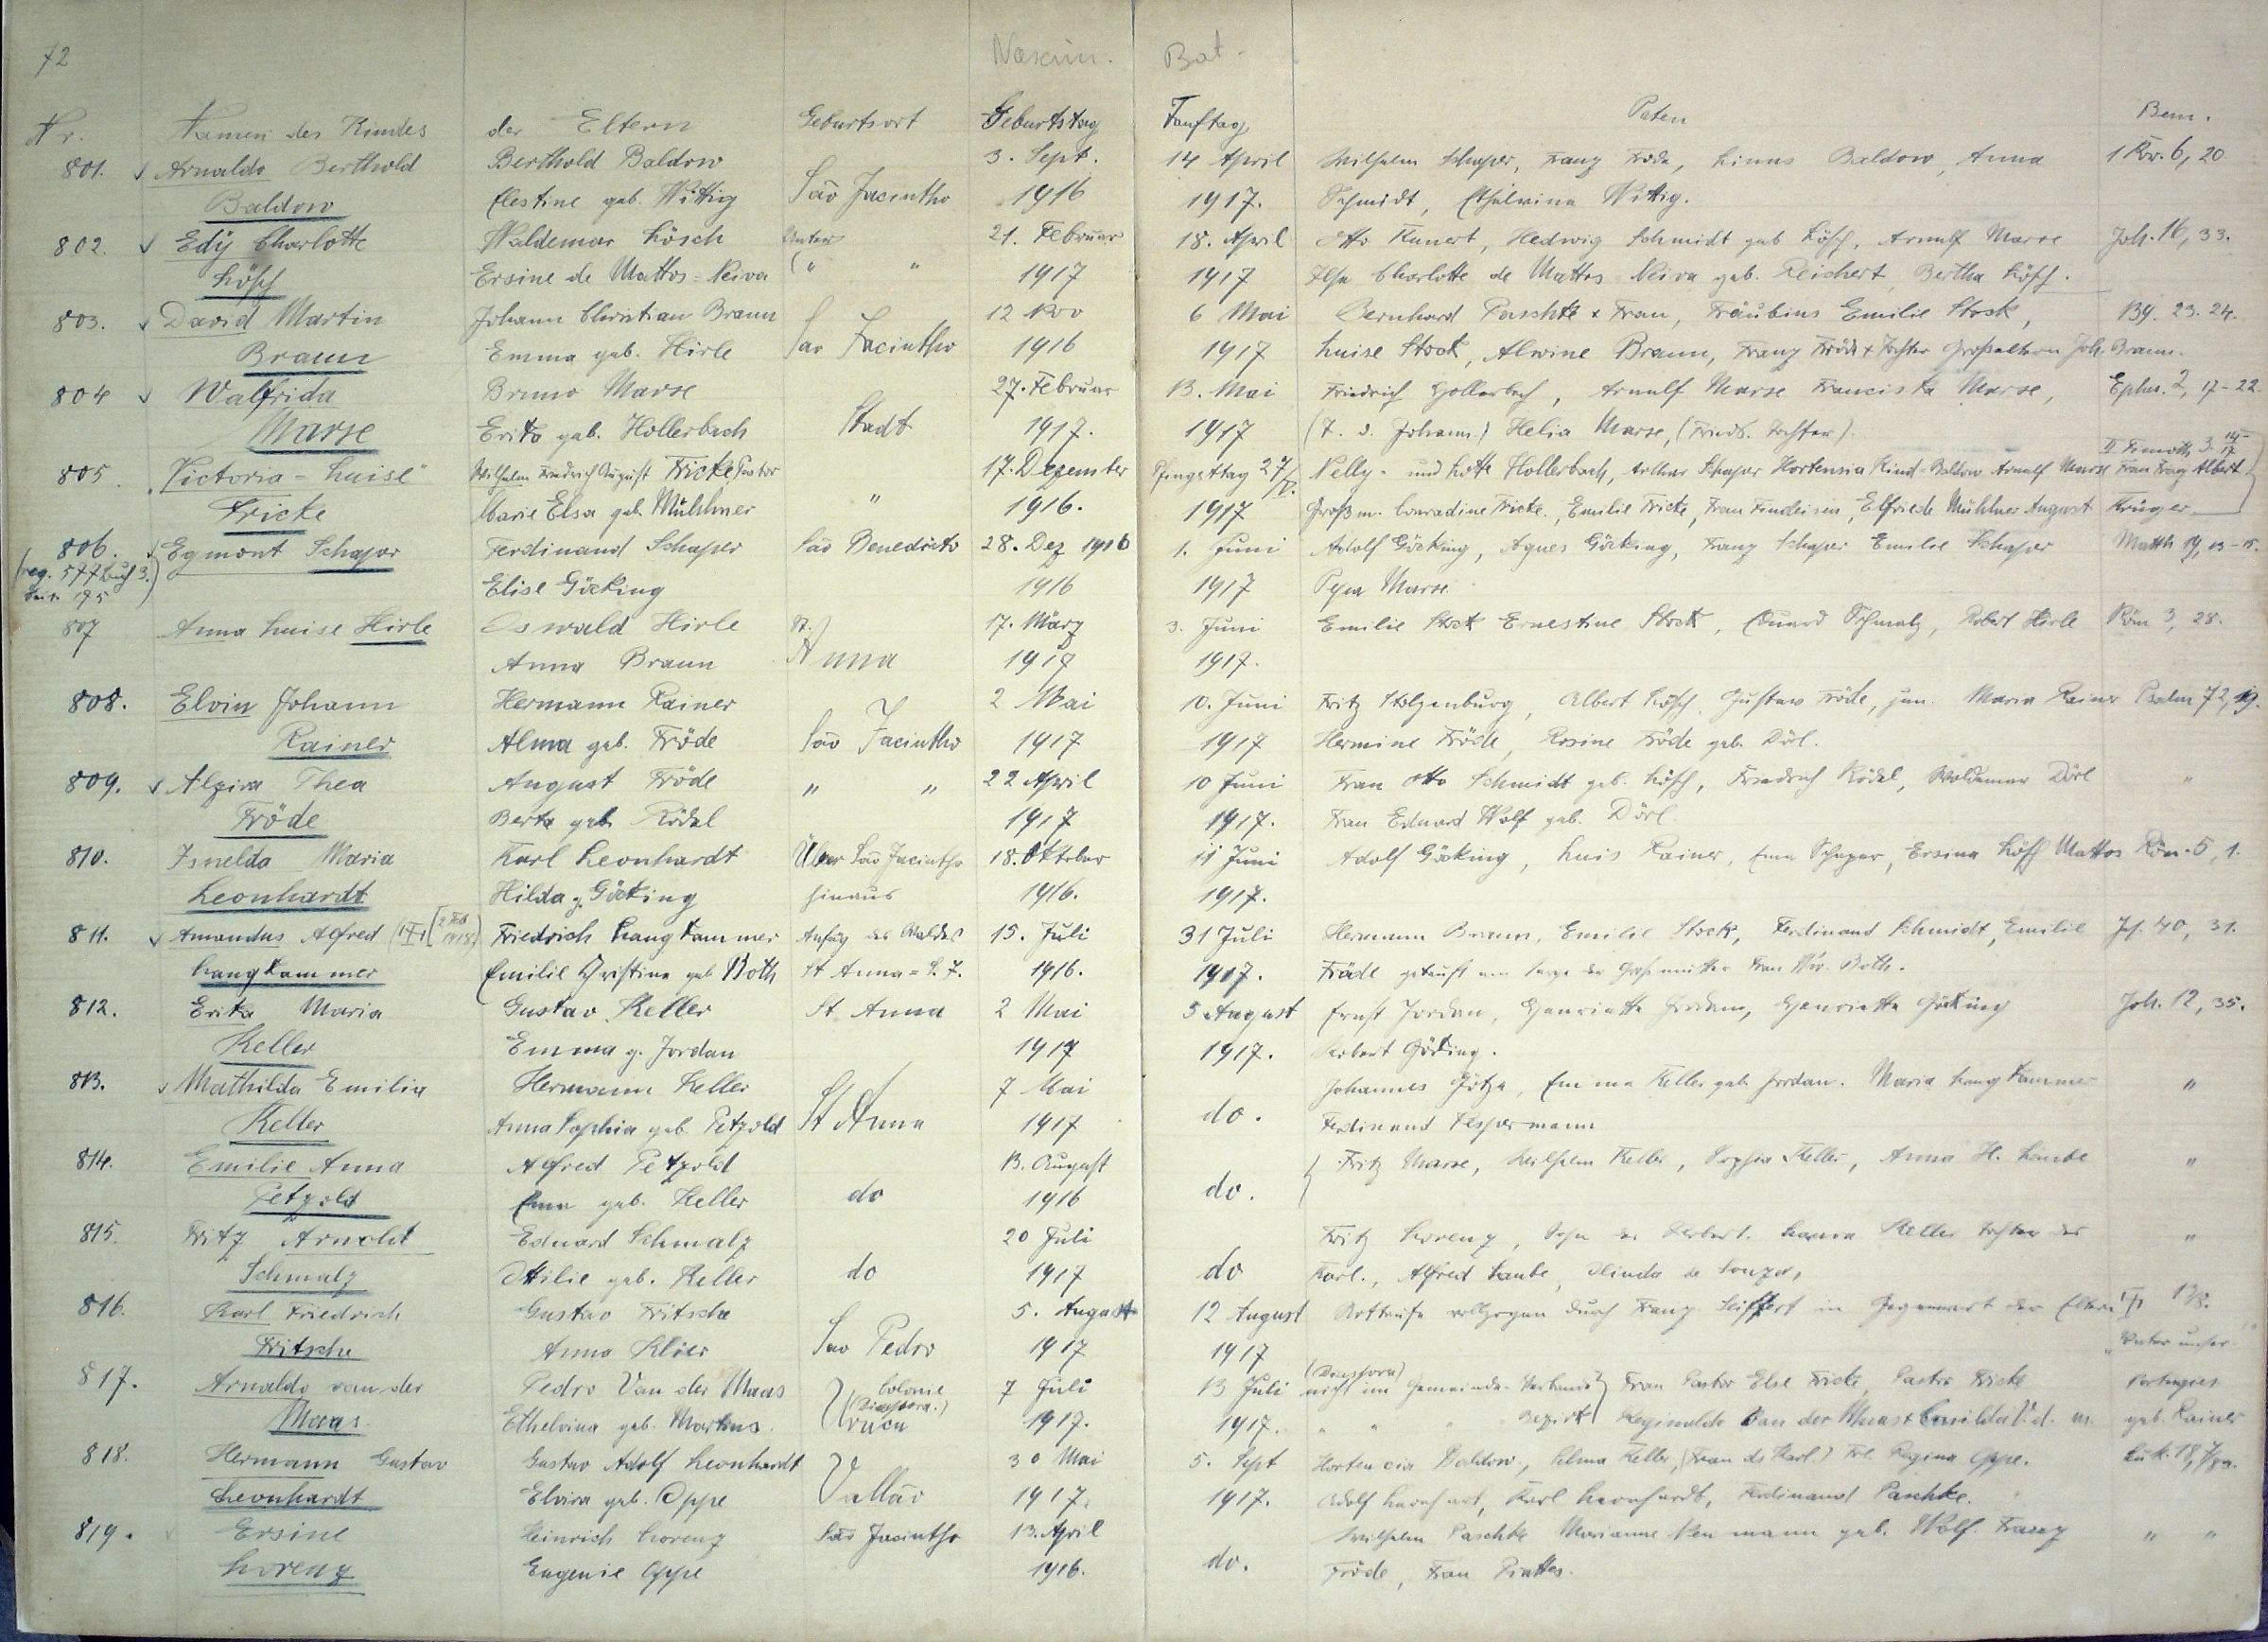 72 Nascim. Bat.
Nr. Namen des Kindes der Eltern Geburtsort Geburtstag Tauftag Paten Bem.
801. Arnaldo Berthold Berthold Baldow 3. Sept. 14 April Wilhelm Schaper, Franz Frode, Linus Baldow, Anna 1 Kor. 6, 20
Baldow Elestine geb. Wittig São Jacintho 1916 1917. Schmidt, Ethelvina Wittig.
802. Edÿ Charlotte Waldemar Lösch 21. Februar 18. April Otto Kunert, Hedwig Schmidt geb Lösch, Arnulf Marse Joh. 16, 33.
Lösch Ersine de Mattos-Neiva " " 1917 1917 Charlotte de Mattos Neiva geb. Reichert, Bertha Lösch.
803. David Martin Johann Christian Braun 12 Nov 6 Mai Bernhard Paschke & Frau, Emilie Stock, 23. 24.
Braun Emma geb. Hirle Sao Jacintho 1916 1917 Luise Stock, Alwine Braun, Franz Fröde & Tochter Großeltern Joh. Braun.
804 Walfrida Bruno Marse 27. Februar 13. Mai Friedrich Hollerbach, Arnulf Marse Franciska Marse, Ephes. 2, 17-22
Marse Erika geb. Hollerbach Stadt 1917. 1917 (T. d. Johann.) Helia Marse, (Friedr. Tochter).
805 „Victoria-Luise" Wilhelm Friedrich August Fricke, Pastor 17. Dezember Pfingsttag 27/V. Nelly- und Lotte Hollerbach, Arthur Schaper Hortensia Kind-Baldow Arnulf Marse Frau Franz Albert II Timoth 3. 14-17
Fricke Marie Elsa geb. Mühlner " 1916. 1917 Großm. Conradine Fricke., Emilie Fricke, Frau Findeisen, Elfriede Mühlner August Krüger
806. Egmont Schaper Ferdinand Schaper São Benedicto 28. Dez 1916 1. Juni Adolf Göcking, Agnes Göcking, Franz Schaper Emilie Schaper Matth 19, 13-15.
(reg. 577 Buch 3. Seite 195) Elise Göcking 1916 1917 Marse
807 Anna Luise Hirle Oswald Hirle St. 17. März 3. Juni Emilie Stock Ernestine Stock, Eduard Schmalz, Robert Hirle Röm 3, 28.
Anna Braun Anna 1917 1917.
808. Elvin Johann Hermann Rainer 2 Mai 10. Juni Fritz Stolzenburg, Albert Lösch, Gustav Fröde, jun. Maria Rainer Psalm 72, 19.
Rainer Alma geb. Fröde São Jacintho 1917 1917 Hermine Fröde, Rosine Fröde geb. Dörl.
809. Alzira Thea August Fröde " " 22 April 10 Juni Frau Otto Schmidt geb. Lösch, Friedrich Rödel, Waldemar Dörl "
Fröde Berta geb. Rödel 1917 1917. Frau Eduard Wolf geb. Dörl.
810. Isnelda Maria Karl Leonhardt Über São Jacintho 18. Oktober 11 Juni Adolf Göcking, Luis Rainer, Schaper, Ersina Lösch Mattos Röm. 5, 1.
Leonhardt Hilda g. Göcking hinaus 1916. 1917.
811. Amandus Alfred Friedrich Langkammer Anfang des Waldes 15. Juli 31 Juli Hermann Braun, Emilie Stock, Ferdinand Schmidt, Emilie Jes. 40, 31.
Langkammer Emilie Christine geb Both St Anna = S. J. 1916. 1917. Fröde getauft am Sarge der Großmutter Frau Ww. Both.
812. Erika Maria Gustav Keller St. Anna 2 Mai 5 August Ernst Jordan, Henriette Jordan, Henriette Göcking Joh. 12, 35.
Keller Emma g. Jordan 1917 1917. Herbert Göcking.
813. Mathilda Emilia Hermann Keller 7 Mai Johannes Götze, Emma Keller geb. Jordan. Maria Langkammer "
Keller Anna Sophia geb. Petzold St Anna 1917 do. Ferdinand
814. Emilie Anna Alfred Petzold 13. August Fritz Marse, Wilhelm Keller, Sophia Keller, Anna H. Laube "
Petzold Emma geb. Keller do 1916 do.
815. Fritz Arnoldt Eduard Schmalz 20 Juli Fritz Lorenz, Sohn des Herbert. Keller Tochter des "
Schmalz Ottilie geb. Keller do 1917 do Karl., Alfred Laube, Olinda de Souza,
816. Karl Friedrich Gustav Fritsche 5. August 12 August Nottaufe vollzogen durch Franz Seiffert in Gegenwart der Eltern
Fritsche Anna Klier Sao Pedro 1917 1917 „Vater unser"
817. Arnaldo van der Pedro Van der Maas Colonie (Diaspora.) 7 Juli 13 Juli (Diaspora) nicht im Gemeinde-Verbande Frau Pastor Else Fricke, Pastor Fricke Portugies
Maas Ethelvina geb. Martins. Urucu 1917. 1917. " " " Bezirk Reginaldo Van der Maas & Casilda V. d. M. geb. Rainer
818. Hermann Gustav Gustav Adolf Leonhardt 30 Mai 5. Sept Hortencia Baldow, Selma Keller, (Frau ds Karl.) Frl. Regina Oppe. Luk. 18,
Leonhardt Elvira geb. Oppe Vallão 1917. 1917. Adolf Leonhardt, Karl Leonhardt, Ferdinand Paschke.
819. Ersine Heinrich Lorenz São Jacintho 13. April Wilhelm Paschke Marianne Neumann geb. Wolf. Franz " "
Lorenz Eugenie Oppe 1916. do. Fröde, Frau Prattes.